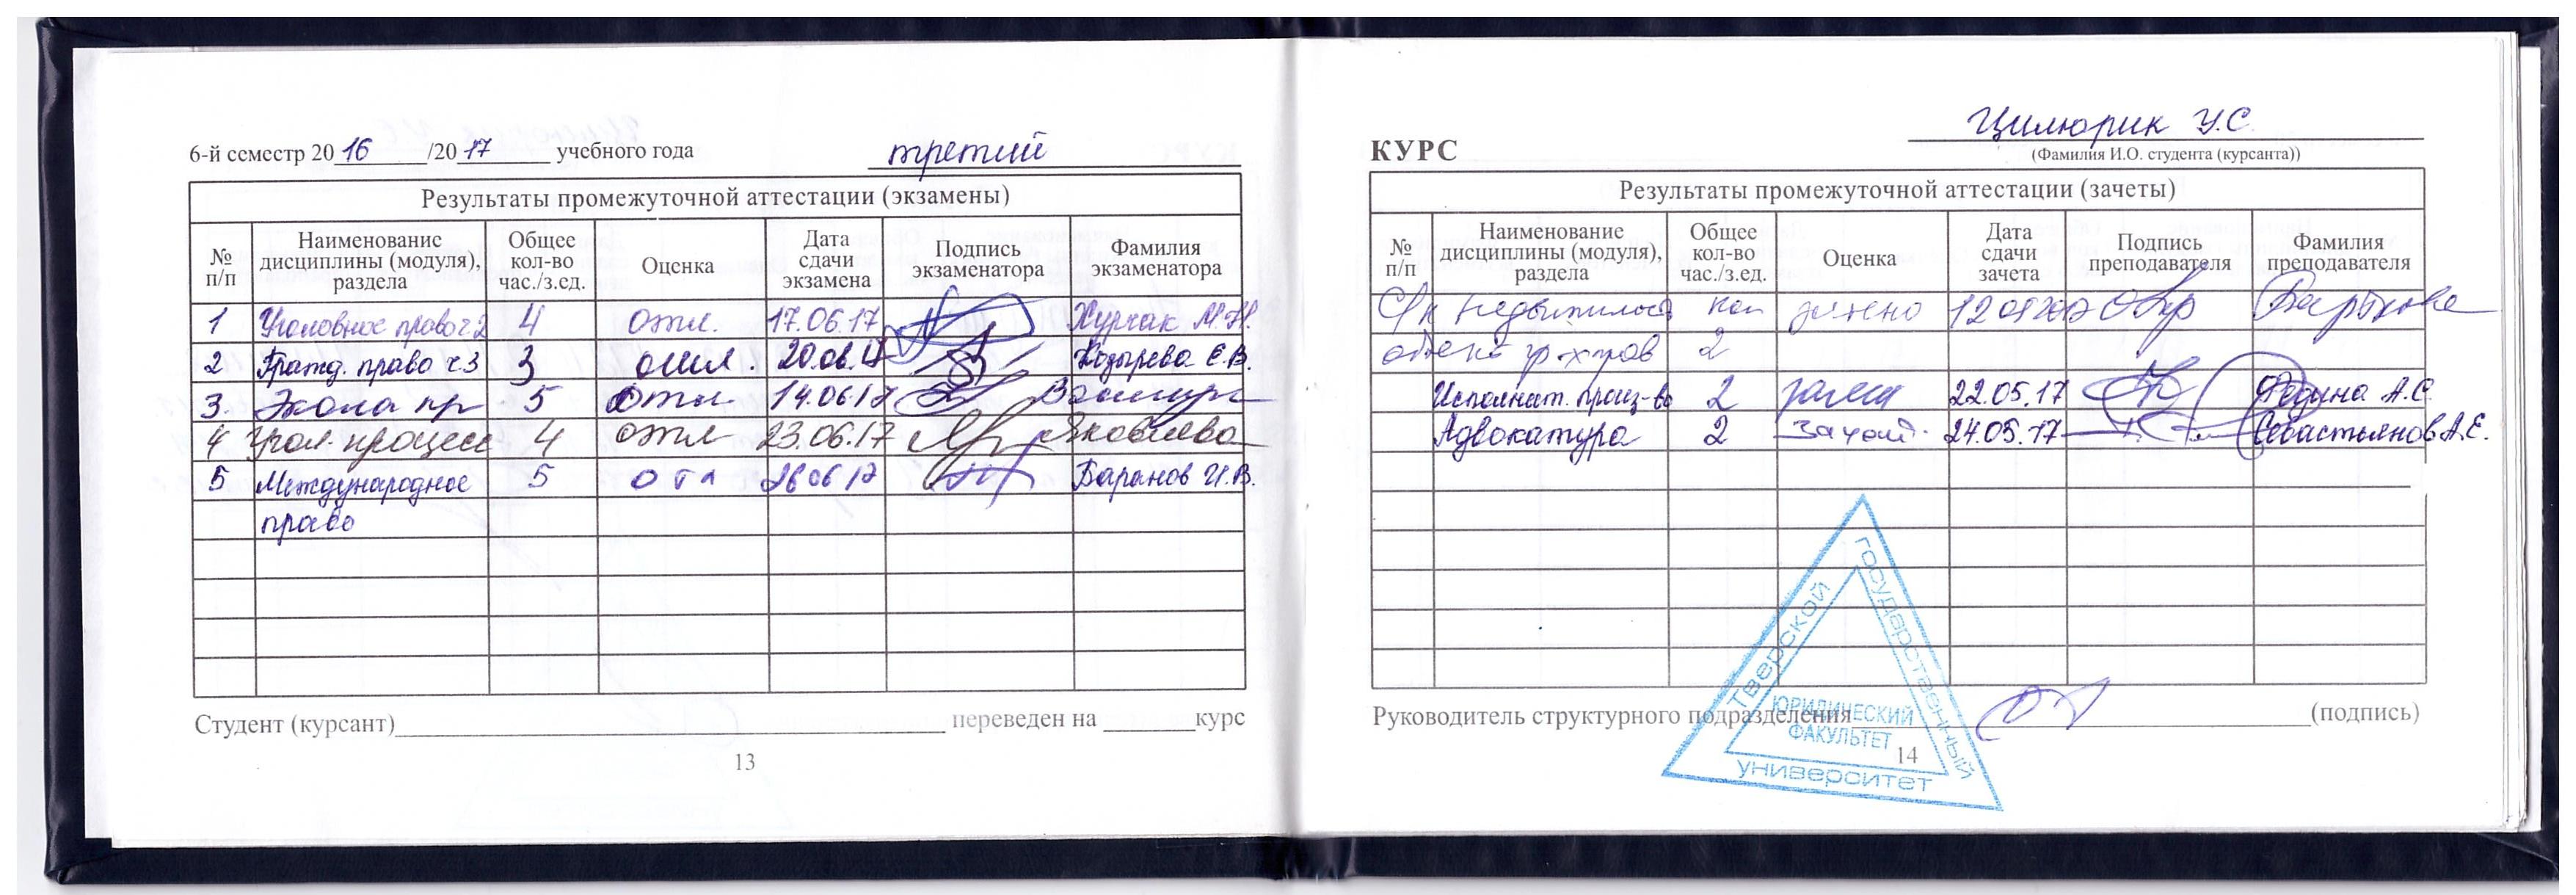 6-й семестр 2016/2017 учебного года третий
Результаты промежуточной аттестации (экзамены)
№ п/п Наименование дисциплины (модуля), раздела Общее кол-во час./з.ед. Оценка Дата сдачи экзамена Подпись экзаменатора Фамилия экзаменатора
1 Уголовное право ч2 4 отл. 17.06.17 Хурчак М.Н.
2 Гражд. право ч.3 3 отл. 20.06.17 Козырева Е.В.
3. Экола пр 5 отл 14.06.17
4 Угол. процесс 4 отл 23.06.17 Яковлева
5 Международное 5 отл 26 06 17 Баранов И.В.
право
Студент (курсант) переведен на курс
13
Цилюрик У.С.
КУРС (Фамилия И.О. студента (курсанта))
Результаты промежуточной аттестации (зачеты)
№ п/п Наименование дисциплины (модуля), раздела Общее кол-во час./з.ед. Оценка Дата сдачи зачета Подпись преподавателя Фамилия преподавателя
недвижимость как
объект 2
Исполнит. произ-во 2 22.05.17 Федина А.С.
Адвокатура 2 24.05.17 Севастьянов А.Е.
Руководитель структурного подразделения (подпись)
14
Тверской государственный университет
ЮРИДИЧЕСКИЙ
ФАКУЛЬТЕТ